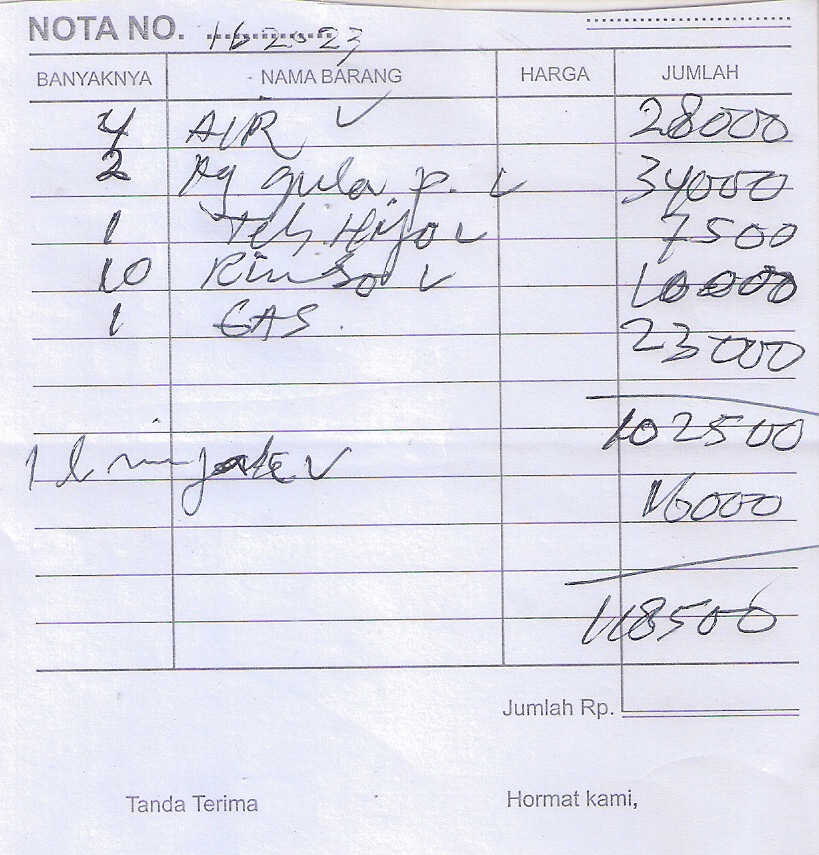 NOTA NO. 16-2-23
BANYAKNYA NAMA BARANG HARGA JUMLAH
4 AIR 28000
2 Kg gula p. 34000
1 Teh Hijo 7500
10 Rinso 10000
1 GAS 23000
102500
1 l
16000
118500
Jumlah Rp.
Tanda Terima Hormat kami,